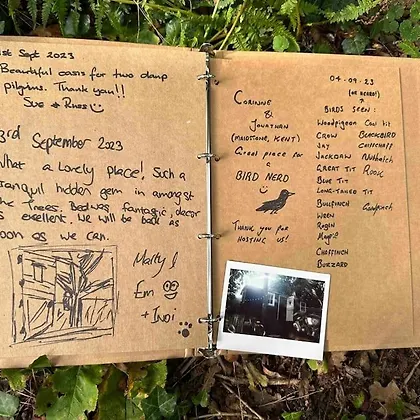 1st Sept 2023
Beautiful oasis for two damp
pilgrims. Thank you!!
Sue & Russ
3rd September 2023
What a Lovely Place! Such a
tranquil hidden gem in amongst
the Trees. Bed was fantastic, decor
is excellent. We will be back as
soon as we can.
Matty J
Em
+ Indi
CORINNE
&
JONATHAN
(MAIDSTONE, KENT)
Great place for
a
BIRD NERD
THANK YOU FOR
HOSTING US!
04.09.23
(OR HEARD!)
BIRDS SEEN:
Woodpigeon Coal tit
CROW BLACKBIRD
JAY CHIFFCHAFF
JACKDAW Nuthatch
GREAT TIT ROOK
BLUE TIT
LONG-TAILED TIT
BULLFINCH Goldfinch
WREN
Robin
Magpie
CHAFFINCH
BUZZARD